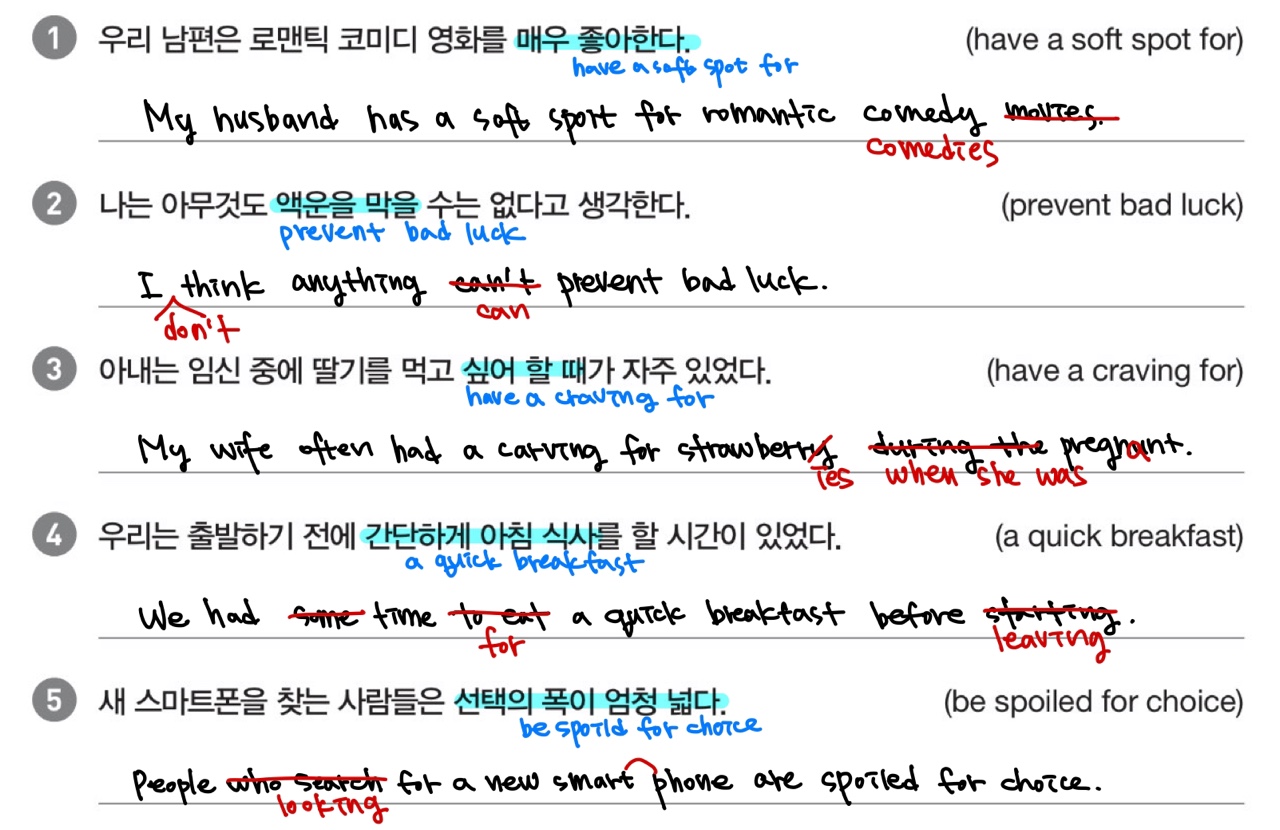 1 우리 남편은 로맨틱 코미디 영화를 매우 좋아한다. (have a soft spot for)
have a soft spot for
My husband has a soft sport for romantic comedy movies.
comedies
2 나는 아무것도 액운을 막을 수는 없다고 생각한다. (prevent bad luck)
prevent bad luck
I think anything can't prevent bad luck.
don't can
3 아내는 임신 중에 딸기를 먹고 싶어 할 때가 자주 있었다. (have a craving for)
have a craving for
My wife often had a carving for strawberry during the pregnant.
ies when she was
4 우리는 출발하기 전에 간단하게 아침 식사를 할 시간이 있었다. (a quick breakfast)
a quick breakfast
We had some time to eat a quick breakfast before starting.
for leaving
5 새 스마트폰을 찾는 사람들은 선택의 폭이 엄청 넓다. (be spoiled for choice)
be spoild for choice
People who search for a new smart phone are spoiled for choice.
looking